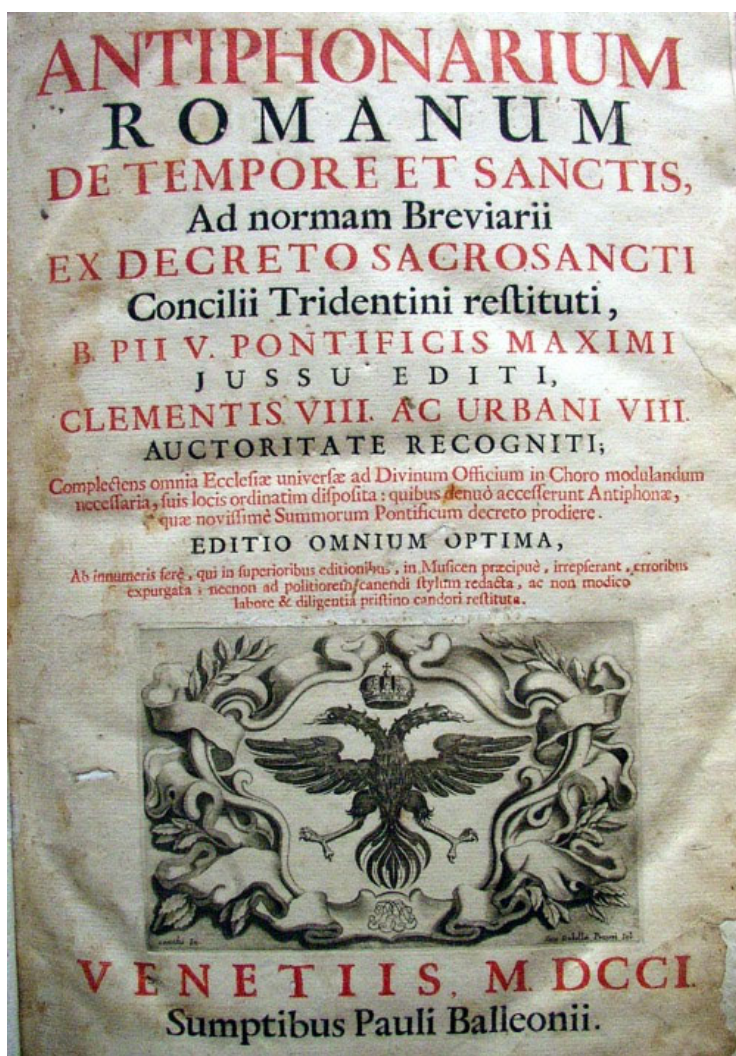 ANTIPHONARIUM
ROMANUM
DE TEMPORE ET SANCTIS,
Ad normam Breviarii
EX DECRETO SACROSANCTI
Concilii Tridentini reſtituti,
B. PII V. PONTIFICIS MAXIMI
JUSSU EDITI,
CLEMENTIS VIII. AC URBANI VIII.
AUCTORITATE RECOGNITI;
Complectens omnia Eccleſiæ univerſæ ad Divinum Officium in Choro modulandum
neceſſaria, ſuis locis ordinatim diſpoſita: quibus denuò acceſſerunt Antiphonæ,
quæ noviſſimè Summorum Pontificum decreto prodiere.
EDITIO OMNIUM OPTIMA,
Ab innumeris ferè, qui in ſuperioribus editionibus, in Muſicen præcipuè, irrepſerant, erroribus
expurgata; necnon ad politiorem canendi ſtylum redacta, ac non modico
labore & diligentia priſtino candori reſtituta.
VENETIIS, M. DCCI.
Sumptibus Pauli Balleonii.